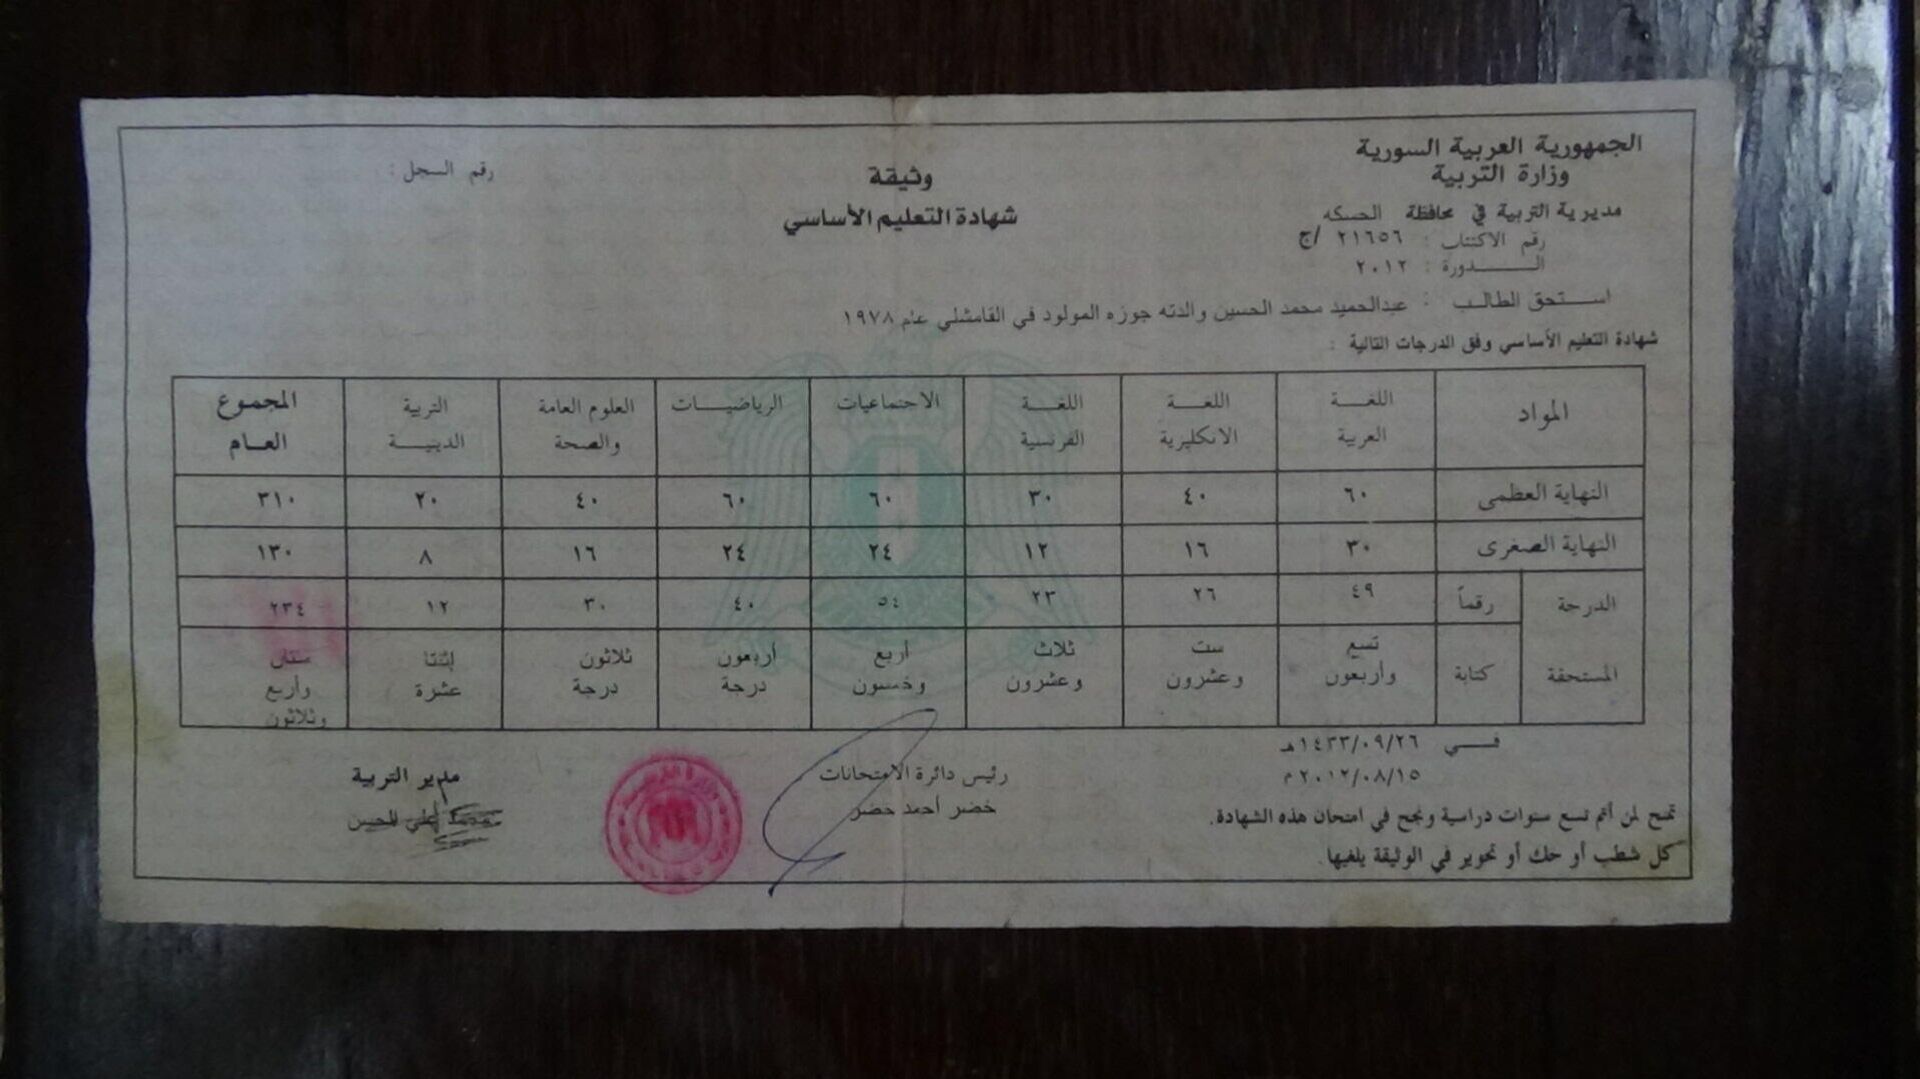 الجمهورية العربية السورية
وزارة التربية
مديرية التربية في محافظة الحسكه
رقم الاكتتاب : ٢١٦٥٦ /ج
الـــدورة : ٢٠١٢
وثيقة
شهادة التعليم الأساسي
رقم السجل :
استحق الطالب : عبدالحميد محمد الحسين والدته جوزه المولود في القامشلي عام ١٩٧٨
شهادة التعليم الأساسي وفق الدرجات التالية :
المواد اللغـة العربية اللغـة الانكليزية اللغـة الفرنسية الاجتماعيات الرياضيـــات العلوم العامة والصحة التربية الدينيـة المجموع العـام
النهاية العظمى ٦٠ ٤٠ ٣٠ ٦٠ ٦٠ ٤٠ ٢٠ ٣١٠
النهاية الصغرى ٣٠ ١٦ ١٢ ٢٤ ٢٤ ١٦ ٨ ١٣٠
الدرجة المستحقة رقماً ٤٩ ٢٦ ٢٣ ٥٤ ٤٠ ٣٠ ١٢ ٢٣٤
كتابة تسع وأربعون ست وعشرون ثلاث وعشرون أربع وخمسون أربعون درجة ثلاثون درجة إثنتا عشرة مئتان وأربع وثلاثون
فـــي ١٤٣٣/٠٩/٢٦هـ
٢٠١٢/٠٨/١٥ م
رئيس دائرة الامتحانات
خضر أحمد خضر
مدير التربية
تمنح لمن أتم تسع سنوات دراسية ونجح في امتحان هذه الشهادة.
كل شطب أو حك أو تحوير في الوثيقة يلغيها.